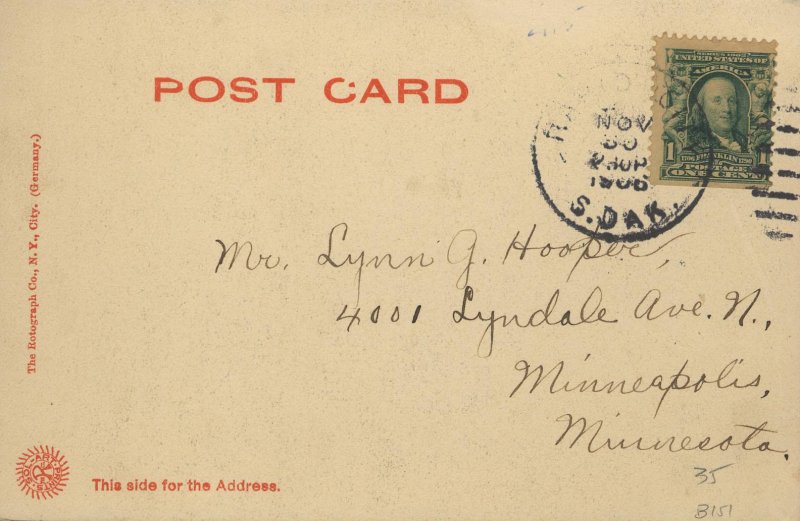 POST CARD
SERIES 1902
UNITED STATES OF
AMERICA
1706 FRANKLIN 1790
1 POSTAGE 1
ONE CENT
NOV
30
1906
S. DAK.
Mr. Lynn G. Hooper,
4001 Lyndale Ave. N.,
Minneapolis,
Minnesota.
The Rotograph Co., N. Y., City. (Germany.)
SOL-ART PRINTS
This side for the Address.
35
B151